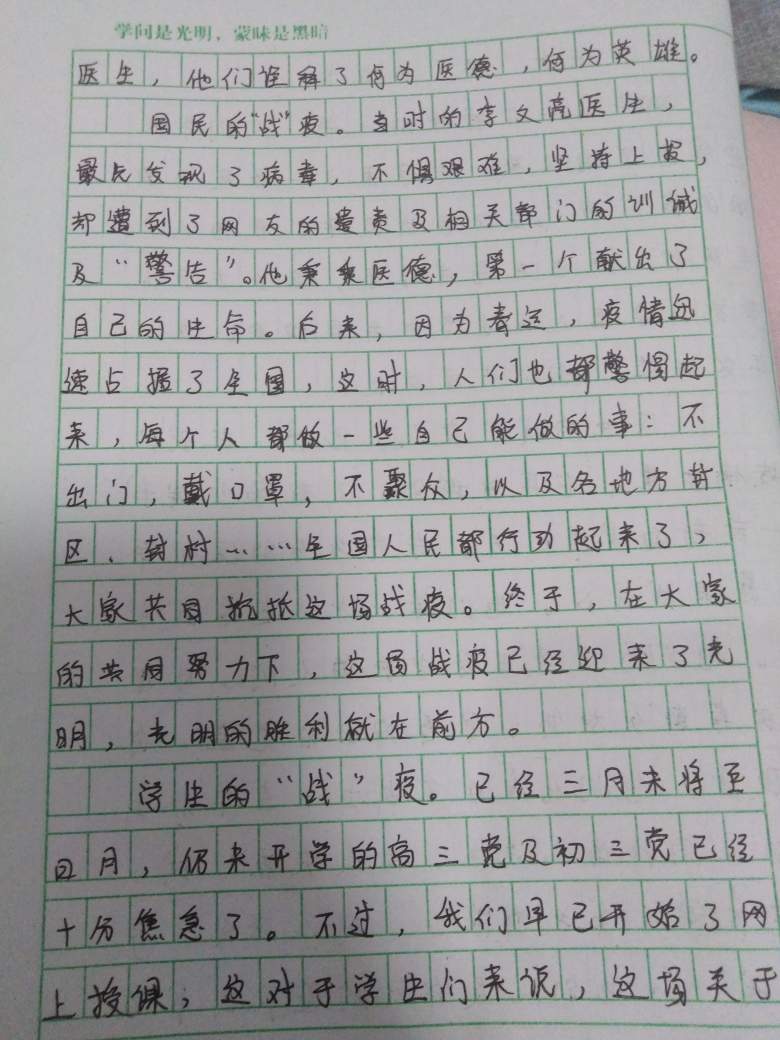 学问是光明，蒙昧是黑暗
医生，他们诠释了何为医德，何为英雄。
国民的“战”疫。当时的李文亮医生，
最先发现了病毒，不惧艰难，坚持上报，
却遭到了网友的遣责及相关部门的训诫
及“警告”。他秉承医德，第一个献出了
自己的生命。后来，因为春运，疫情迅
速占据了全国，这时，人们也都警惕起
来，每个人都做一些自己能做的事：不
出门，戴口罩，不聚众，以及各地方封
区、封村……全国人民都行动起来了，
大家共同抗抵这场战疫。终于，在大家
的共同努力下，这场战疫已经迎来了光
明，光明的胜利就在前方。
学生的“战”疫。已经三月末将至
四月，仍未开学的高三党及初三党已经
十分焦急了。不过，我们早已开始了网
上授课，这对于学生们来说，这场关于